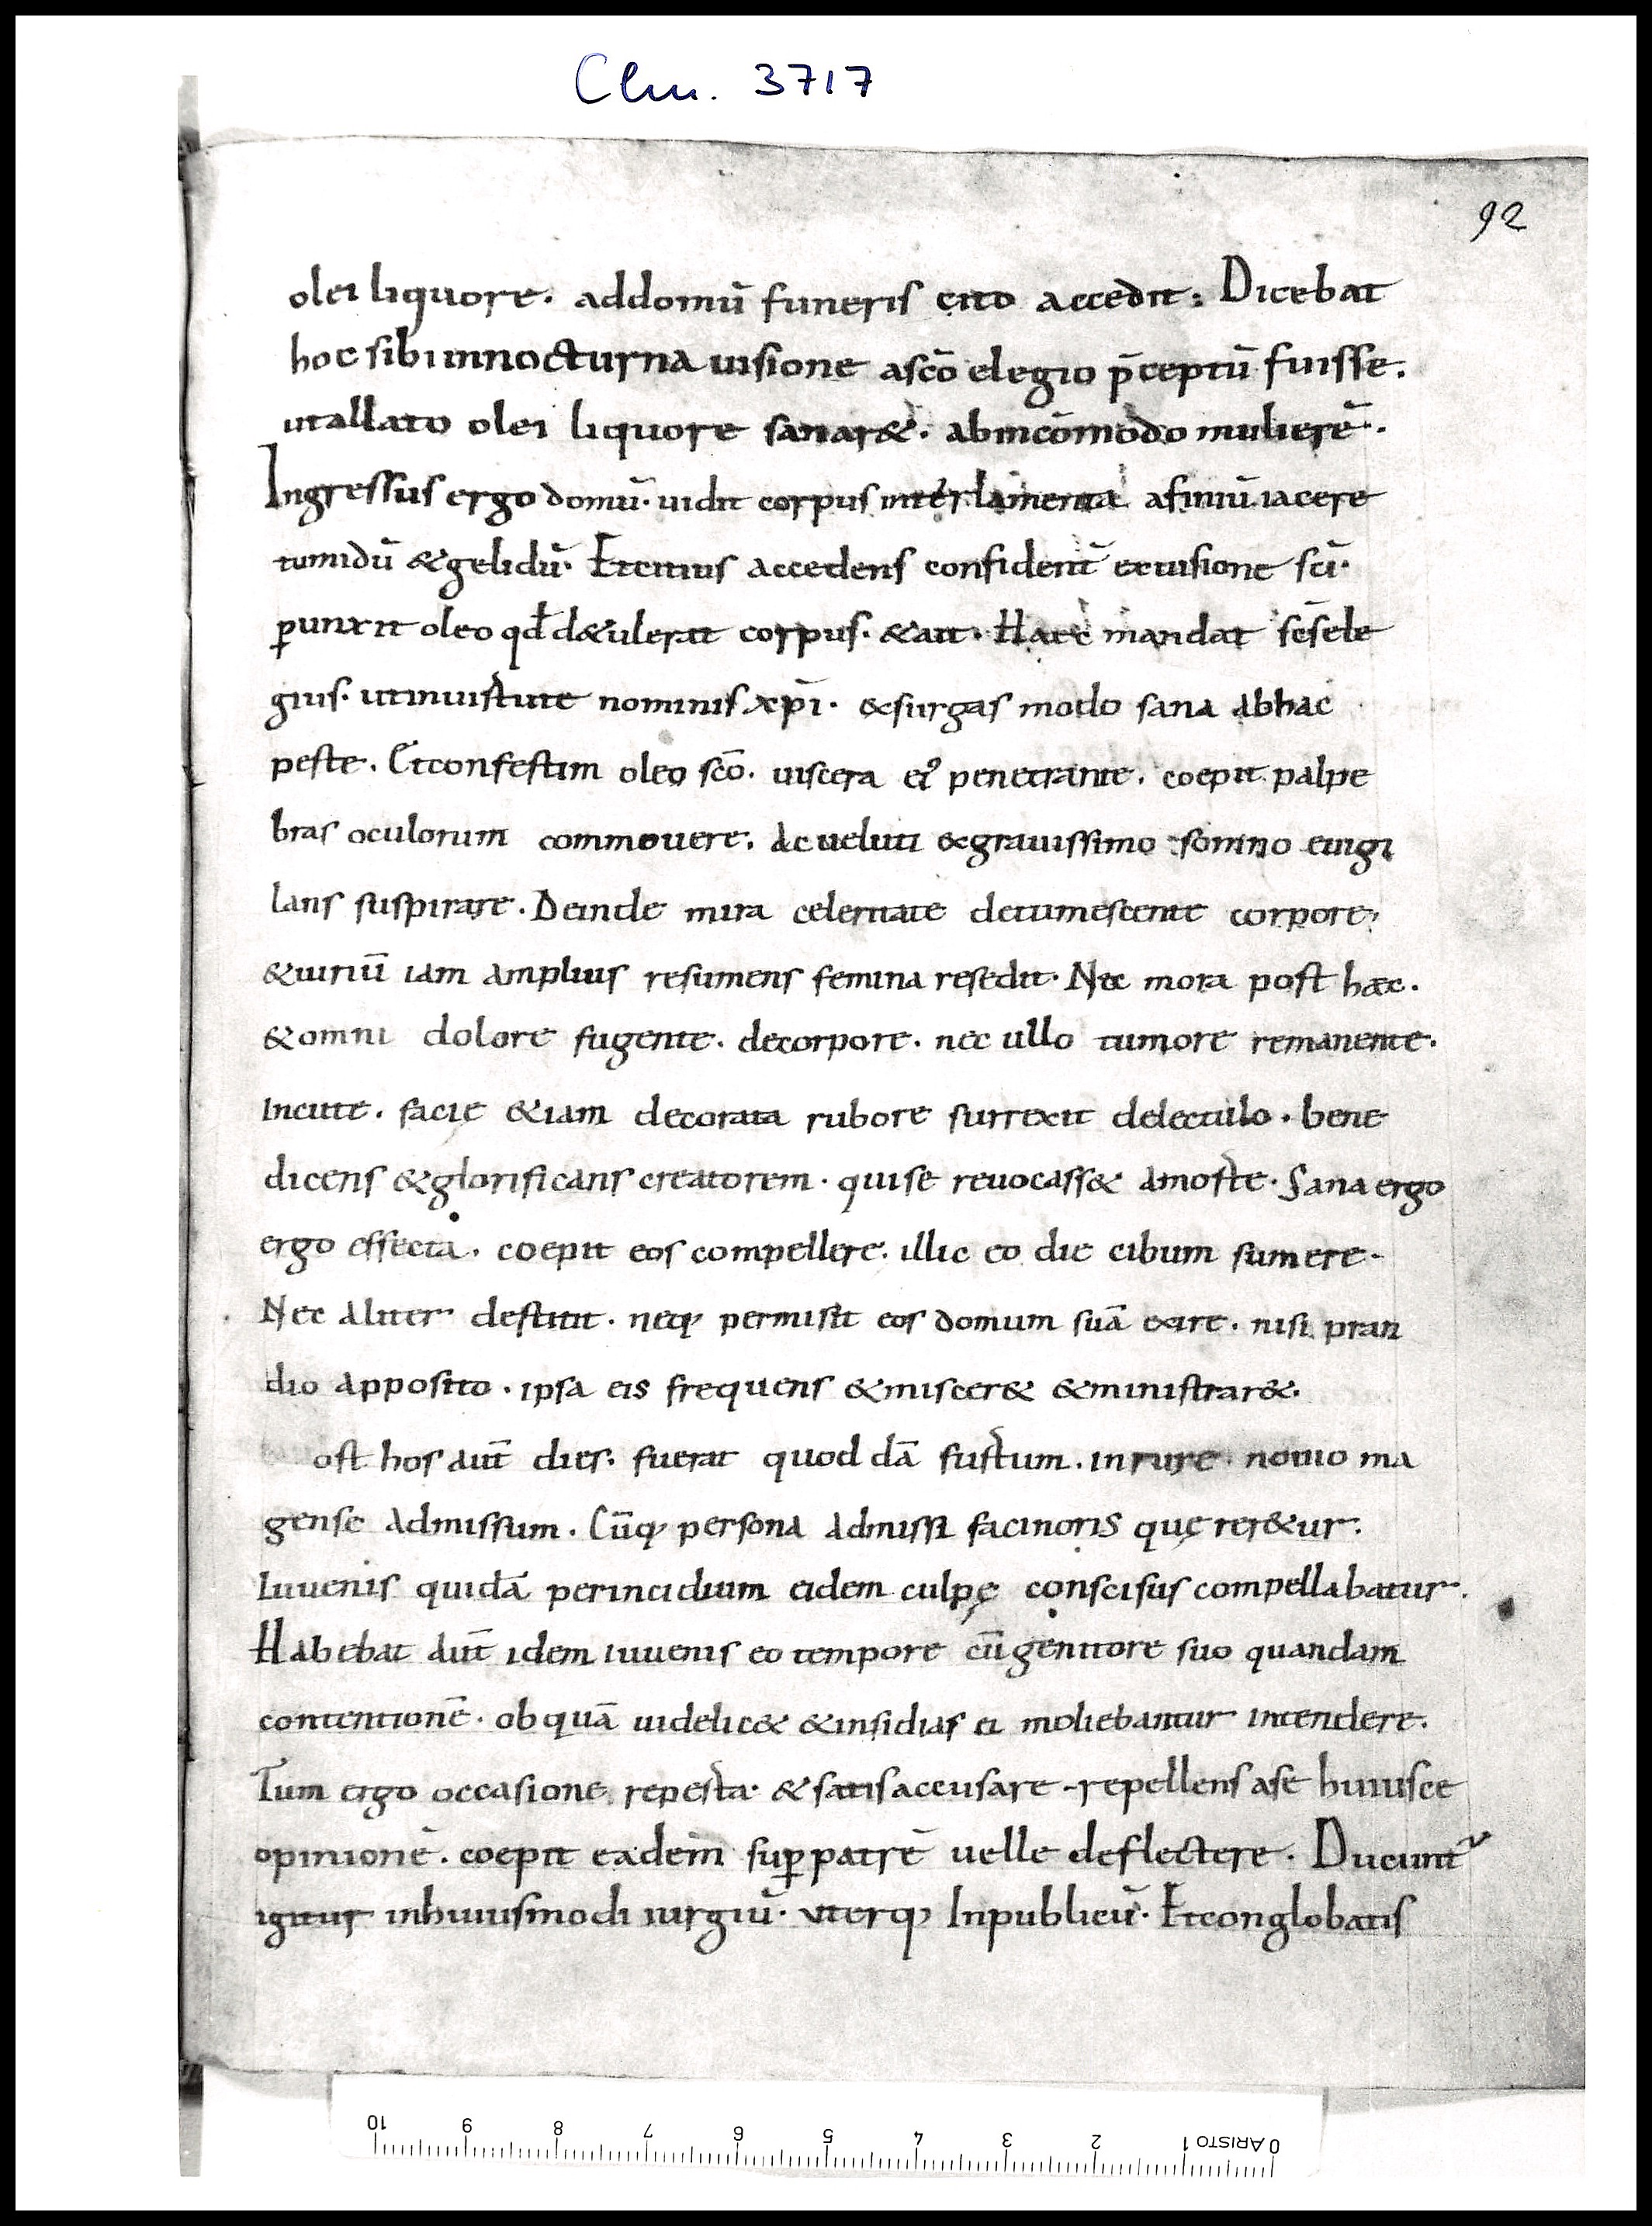 Clm. 3717
92
olei liquore. addomū funeris cito accedit: Dicebat
hoc sibi innocturna uisione ascō elegio p̄ceptū fuisse.
utallato olei liquore sanar&. abincōmodo mulierē.
Ingressus ergo domū. uidit corpus inter lamenta afiniū iacere
tumidū &gelidū. Etcitius accedens confident̄ exuisione sc̄i.
ꝑunxit oleo qd̄ d&ulerat corpus. &ait. Haec mandat sc̄s ele
gius. utinuirtute nominis xp̄i. &surgas modo sana abhac
peste. Etconfestim oleo scō. uiscera eiꝰ penetrante. coepit palpe
bras oculorum commouere. ac ueluti &grauissimo somno euigi
lans suspirare. Deinde mira celeritate detumescente corpore;
&uiriū iam amplius resumens femina resedit. Nec mora post haec.
&omni dolore fugente. decorpore. nec ullo tumore remanente.
incute. facie &iam decorata rubore surrexit delectulo. bene
dicens &glorificans creatorem. quise reuocass& amorte. Sana ergo
ergo effecta. coepit eos compellere. illic eo die cibum sumere.
Nec aliter destitit. neq; permisit eos domum suā exire. nisi pran
dio apposito. ipsa eis frequens &miscer& &ministrar&.
ost hos aut̄ dies. fuerat quod dā furtum. inrure nouio ma
gense admissum. Cūq; persona admissi facinoris quęrer&ur.
Iuuenis quidā perincidium eidem culpę conscisus compellabatur.
Habebat aut̄ idem iuuenis eo tempore cū genitore suo quandam
contentionē. ob quā uidelic& &insidias ei moliebantur intendere.
Tum ergo occasione reperta. & satisaccusare repellens ase huiusce
opinionē. coepit eadem suꝑpatrē uelle deflectere. Ducunt̄
igitur inhuiusmodi iurgiū. uterq; Inpublicū. Etconglobatis
10 9 8 7 6 5 4 3 2 1 ARISTO 0